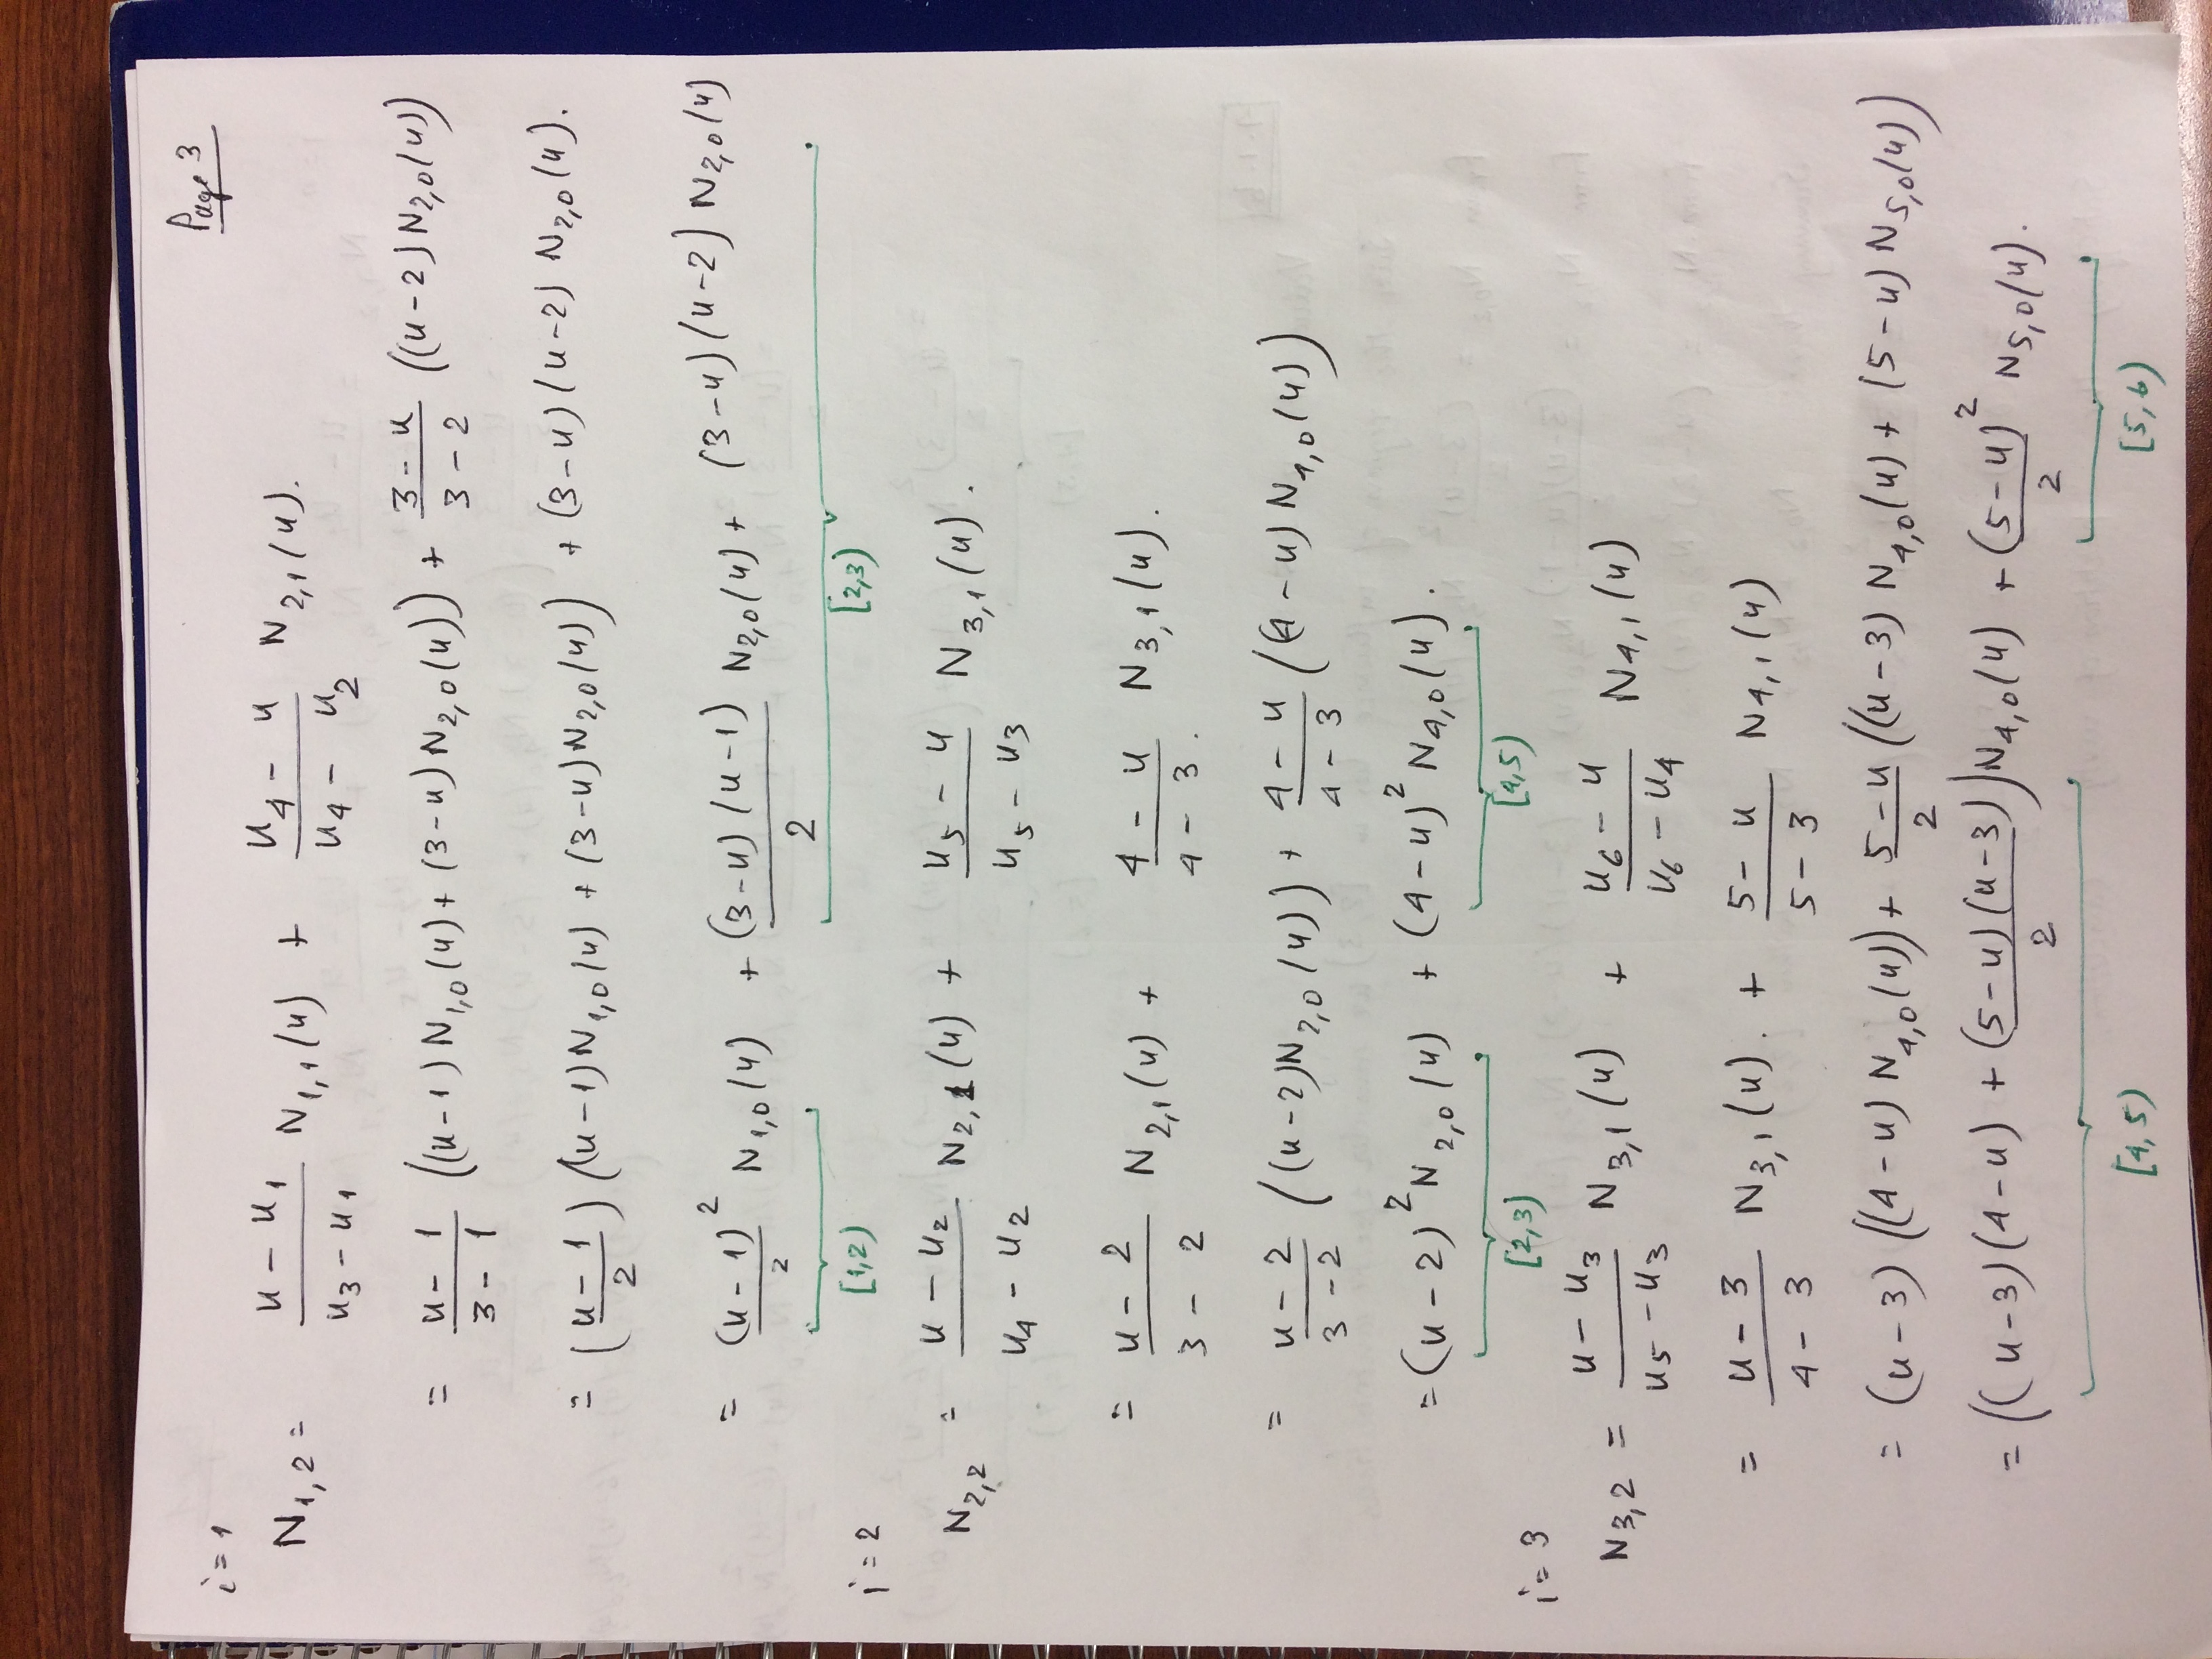 Page 3
i = 1
N1,2 = (u - u1)/(u3 - u1) N1,1(u) + (u4 - u)/(u4 - u2) N2,1(u).
= (u - 1)/(3 - 1) ((u-1) N1,0(u) + (3-u) N2,0(u)) + (3 - u)/(3 - 2) ((u-2) N2,0(u))
= ((u - 1)/2) ((u-1) N1,0(u) + (3-u) N2,0(u)) + (3-u)(u-2) N2,0(u).
= (u - 1)²/2 N1,0(u) + (3-u)(u-1)/2 N2,0(u) + (3-u)(u-2) N2,0(u)
[1,2) [2,3)
i = 2
N2,2 = (u - u2)/(u4 - u2) N2,1(u) + (u5 - u)/(u5 - u3) N3,1(u).
= (u - 2)/(3 - 2) N2,1(u) + (4 - u)/(4 - 3.) N3,1(u).
= (u - 2)/(3 - 2) ((u-2) N2,0(u)) + (4 - u)/(4 - 3) ((4 - u) N4,0(u))
= (u - 2)² N2,0(u) + (4 - u)² N4,0(u).
[2,3) [4,5)
i = 3
N3,2 = (u - u3)/(u5 - u3) N3,1(u) + (u6 - u)/(u6 - u4) N4,1(u)
= (u - 3)/(4 - 3) N3,1(u). + (5 - u)/(5 - 3) N4,1(u)
= (u-3) ((4-u) N4,0(u)) + (5 - u)/2 ((u-3) N4,0(u) + (5-u) N5,0(u))
= ((u-3)(4-u) + (5-u)(u-3)/2) N4,0(u) + (5-u)²/2 N5,0(u).
[4,5) [5,6)